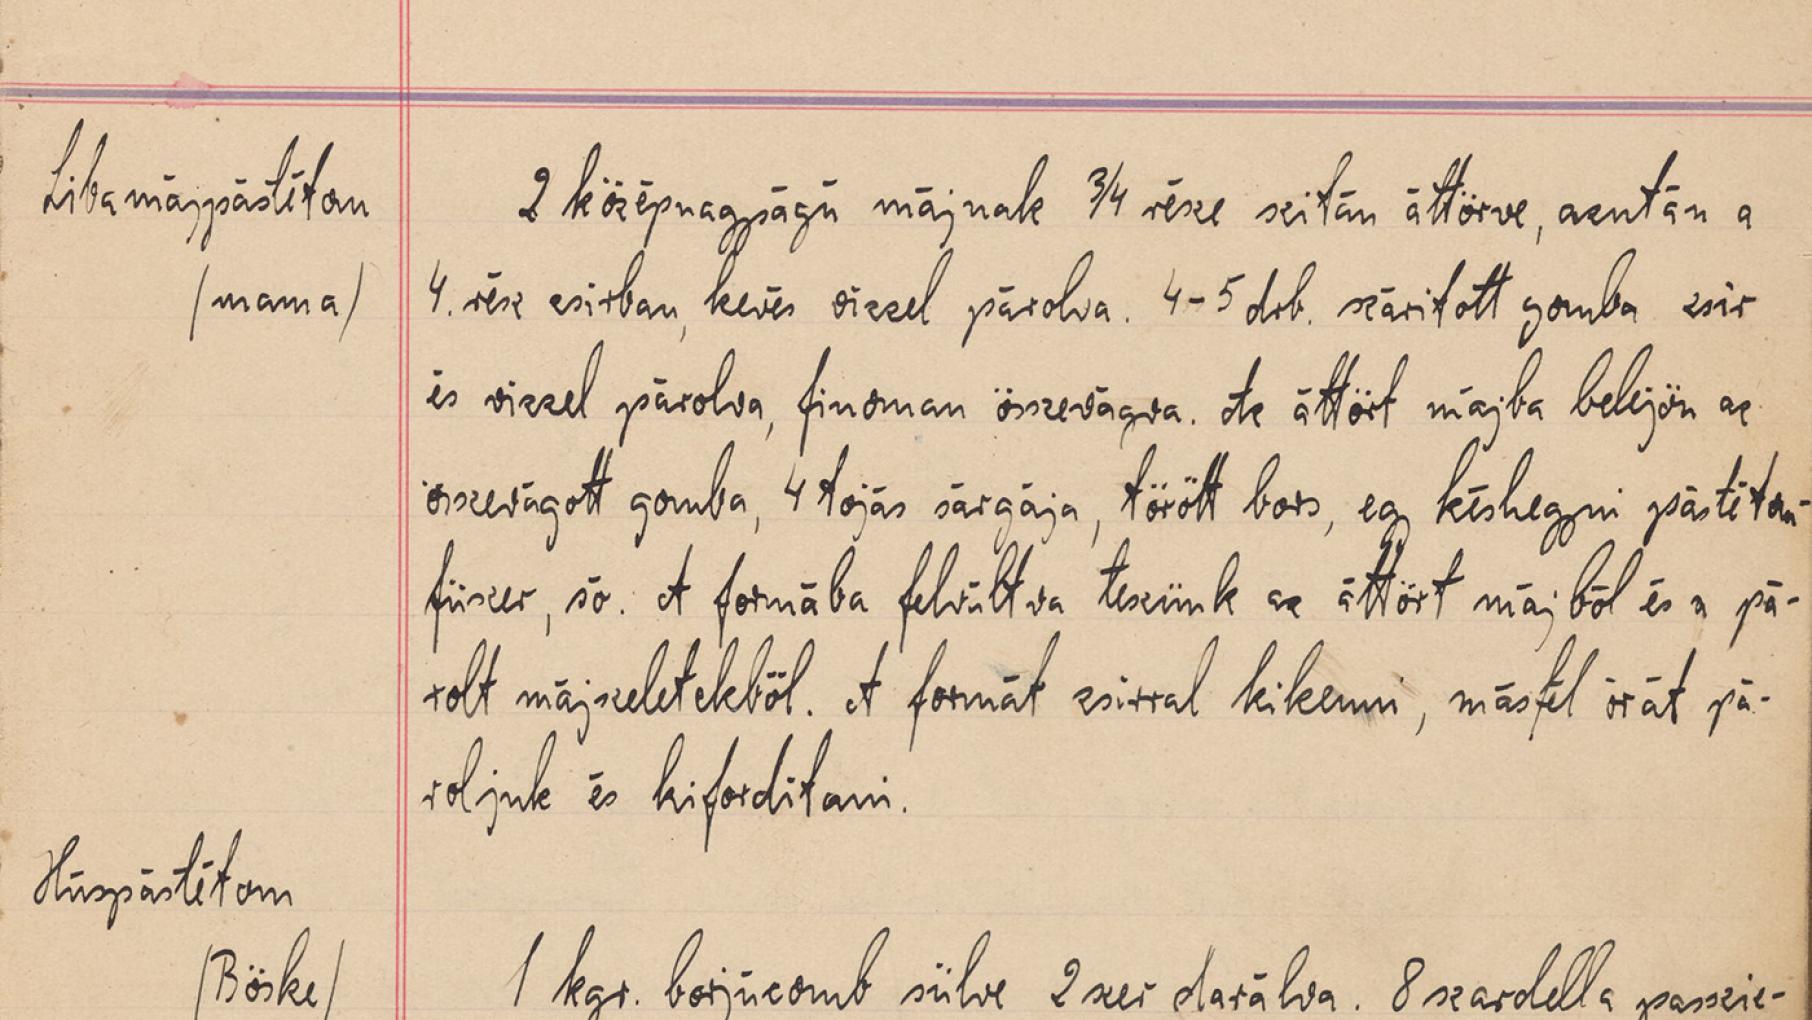 Libamájpástétom
(mama)
2 középnagyságú májnak 3/4 része szitán áttörve, azután a
4. rész zsirban, kevés vizzel párolva. 4-5 drb. száritott gomba zsir
és vizzel párolva, finoman összevágva. Az áttört májba belejön az
összevágott gomba, 4 tojás sárgája, törött bors, egy késhegyni pástétom-
füszer, só. A formába felváltva teszünk az áttört májból és a pá-
rolt májszeletekből. A formát zsirral kikenni, másfél órát pá-
roljuk és kiforditani.
Húspástétom
(Böske)
1 kgr. borjúcomb sülve 2 szer darálva. 8 szardella passzir-